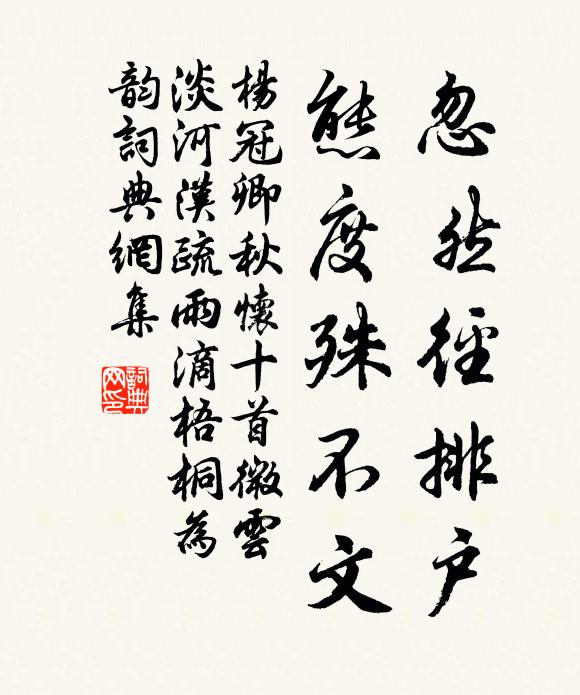 忽然徑排户
態度殊不文
楊冠卿秋懷十首微雲
淡河漢疏雨滴梧桐為
韵詞典網集
詞典
网印